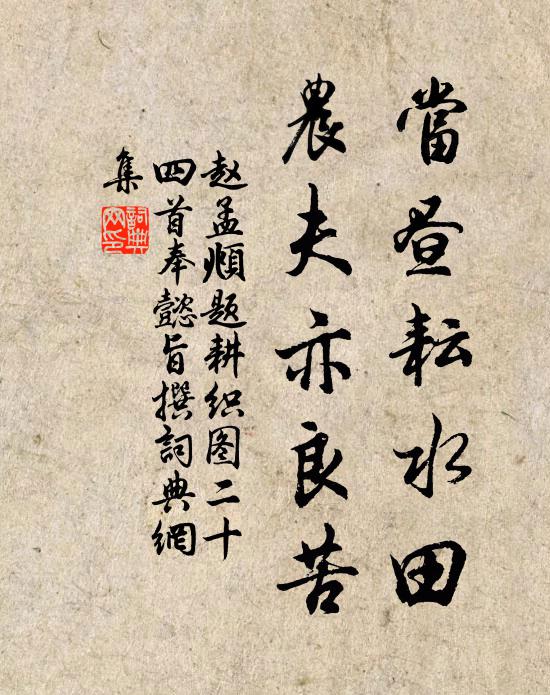 當昼耘水田
農夫亦良苦
赵孟頫题耕织图二十
四首奉懿旨撰詞典網
集
詞典網印